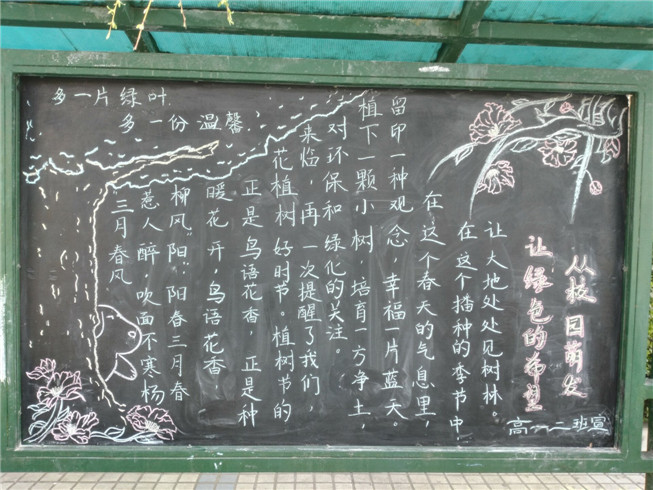 多一片绿叶
多一份温馨
三月春风
惹人醉，吹面不寒杨
柳风。阳：阳春三月春
暖花开，鸟语花香
正是鸟语花香 正是种
花植树好时节。植树节的
来临，再一次提醒了我们，
对环保和绿化的关注。
植下一颗小树，培育一方净土，
留印一种观念，幸福一片蓝天。
在这个春天的气息里，
在这个播种的季节中，
让大地处处见树林。
让绿色的希望
从校园萌发
高一二班宣